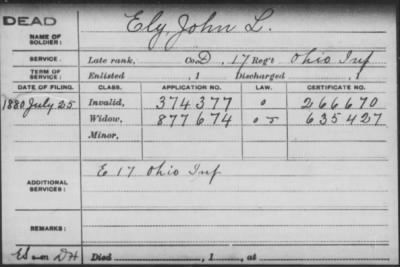 DEAD
NAME OF SOLDIER: Ely, John L.
SERVICE: Late rank, Co. D, 17 Reg't Ohio Inf
TERM OF SERVICE: Enlisted , 1 Discharged , 1
DATE OF FILING. CLASS. APPLICATION NO. LAW. CERTIFICATE NO.
1880 July 25 Invalid, 374377 o 266670
Widow, 877674 635427
Minor,
ADDITIONAL SERVICES: E 17 Ohio Inf
REMARKS:
Died , 1 , at